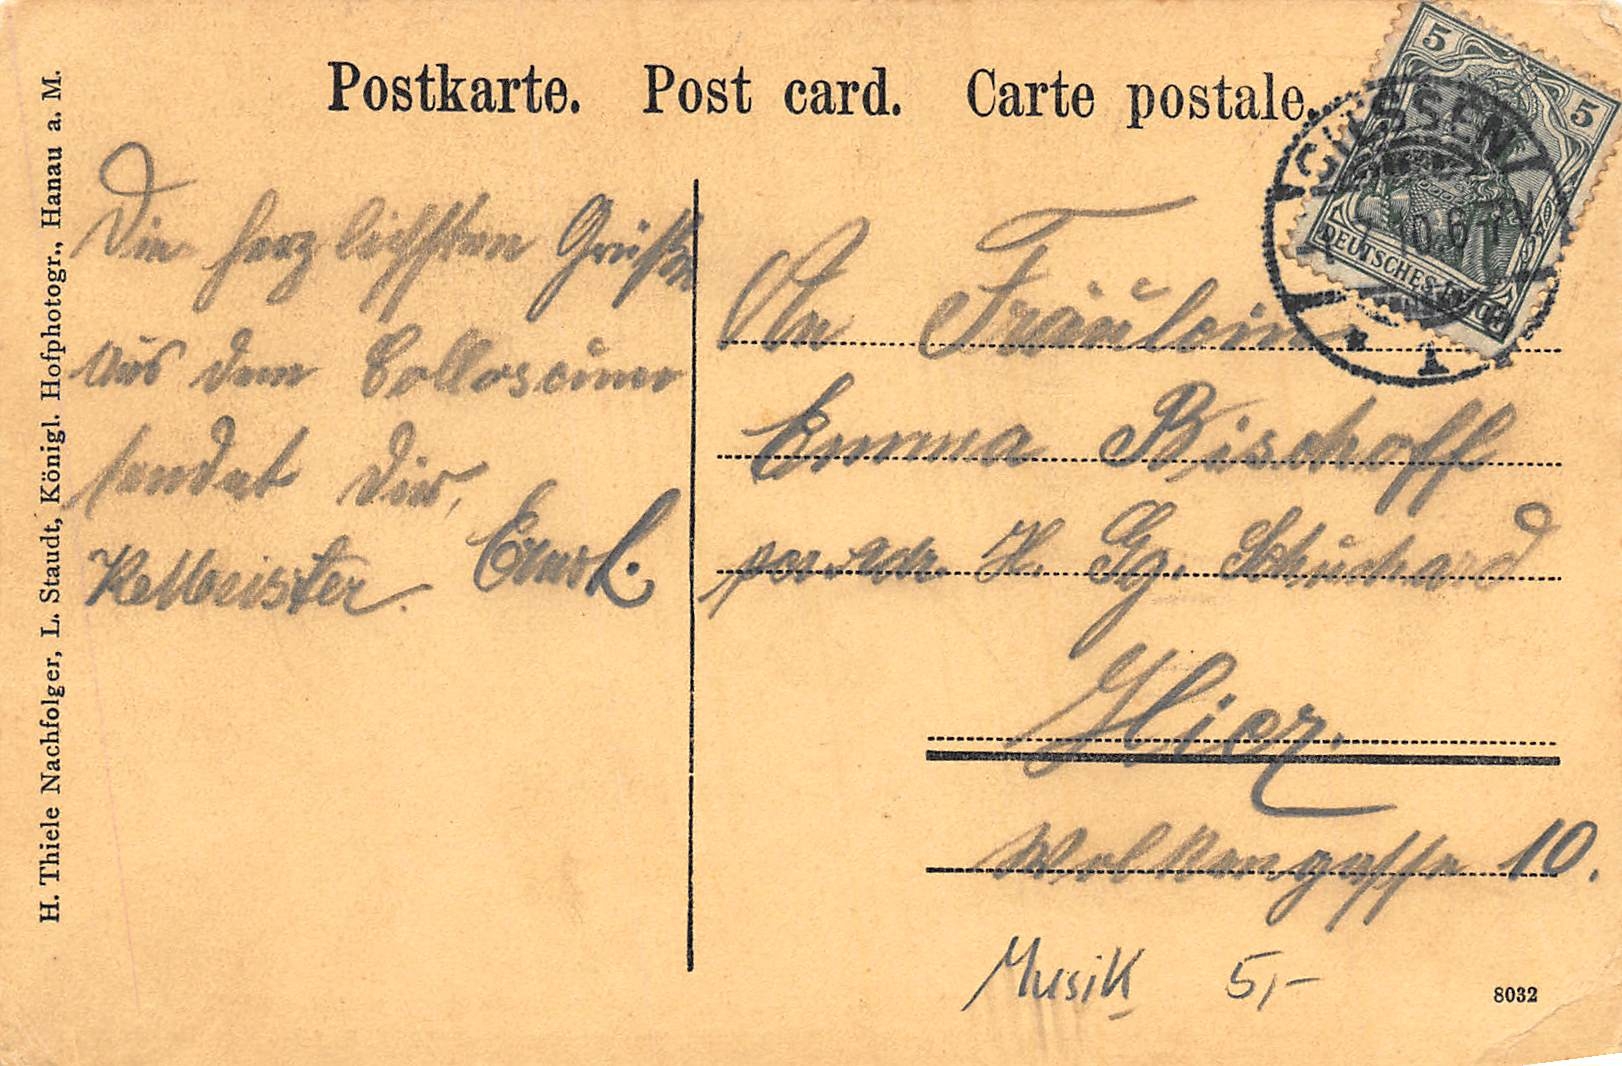 Postkarte. Post card. Carte postale.
H. Thiele Nachfolger, L. Staudt, Königl. Hofphotogr., Hanau a. M.
Die herzlichsten Grüße
aus dem Colloseumo
sendet Dir,
Kellmeister. Emil.
5
5
DEUTSCHES REICH
GIESSEN
10.6
1
An Fräulein
Emma Bischoff
per Adr. H. Gg. Schuchard
Hier.
Wolkengasse 10.
Musik 5,-
8032